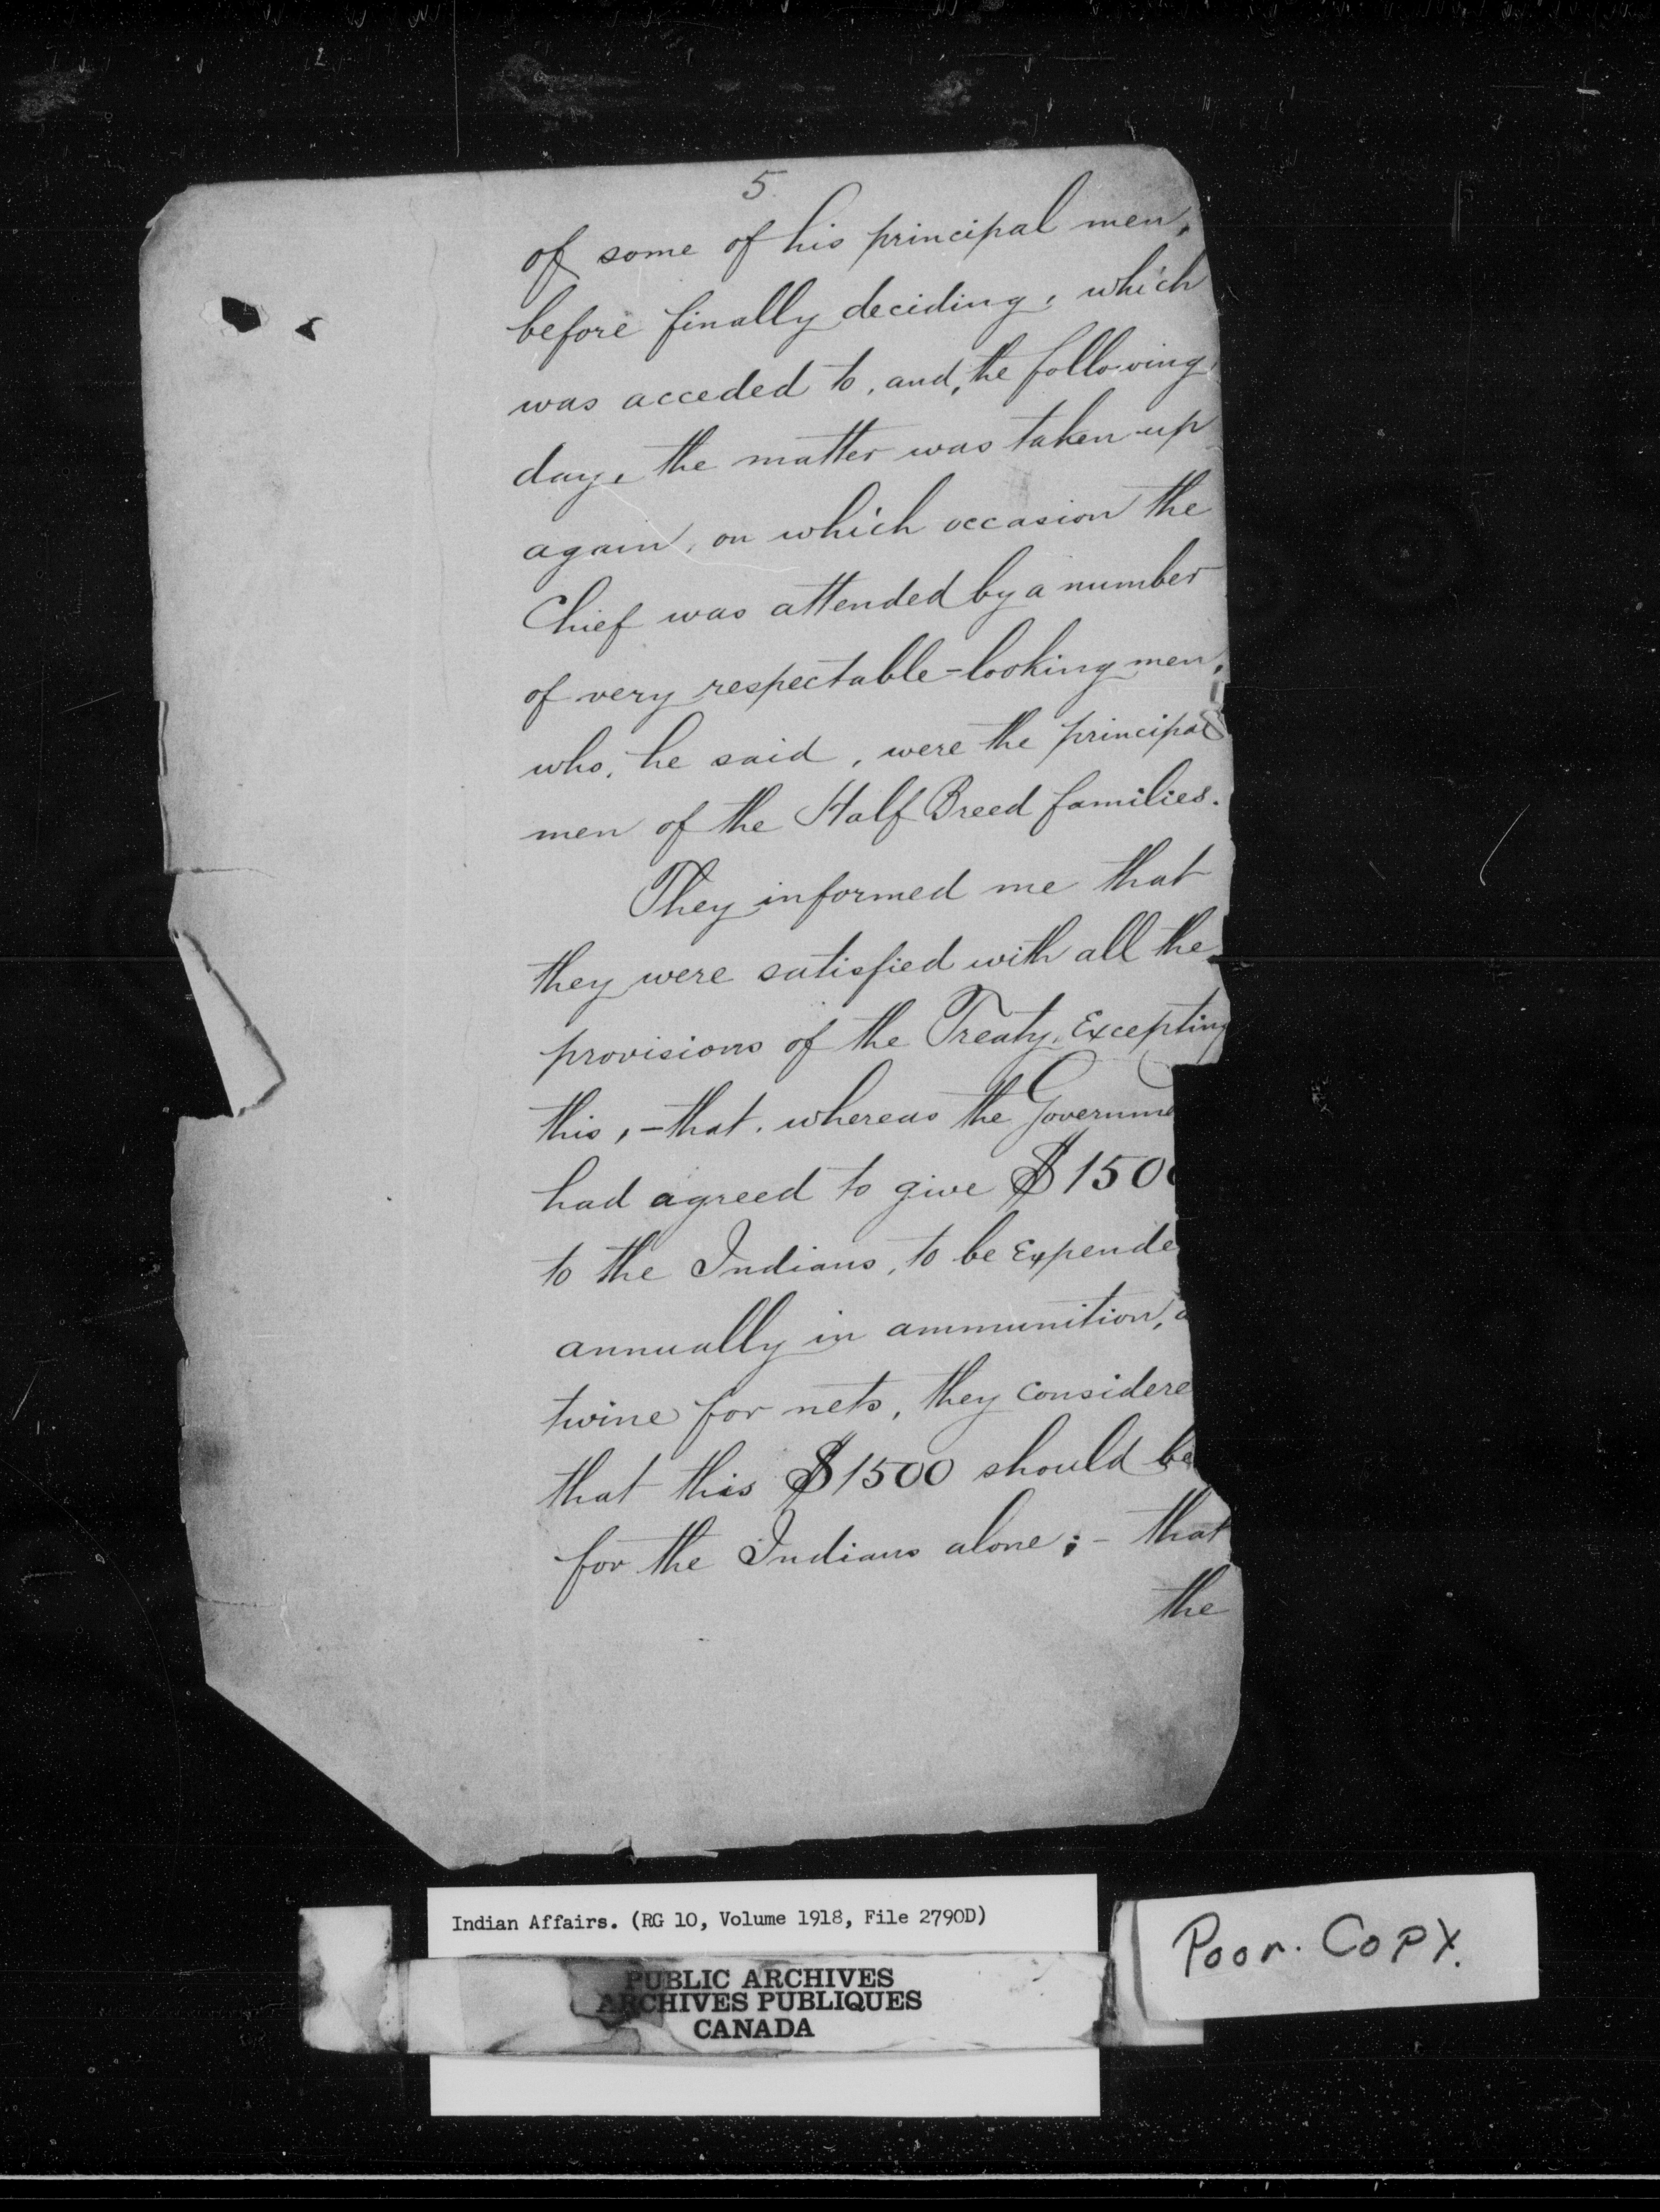 5.
of some of his principal men,
before finally deciding, which
was acceded to, and, the following
day, the matter was taken up
again, on which occasion the
Chief was attended by a number
of very respectable-looking men,
who, he said, were the principal
men of the Half Breed families.
They informed me that
they were satisfied with all the
provisions of the Treaty, Excepting
this, - that, whereas the Governme
had agreed to give $1500
to the Indians, to be Expende
annually in ammunition, a
twine for nets, they Considere
that this $1500 should be
for the Indians alone; - that
the
Indian Affairs. (RG 10, Volume 1918, File 2790D)
PUBLIC ARCHIVES
ARCHIVES PUBLIQUES
CANADA
Poor. Copy.